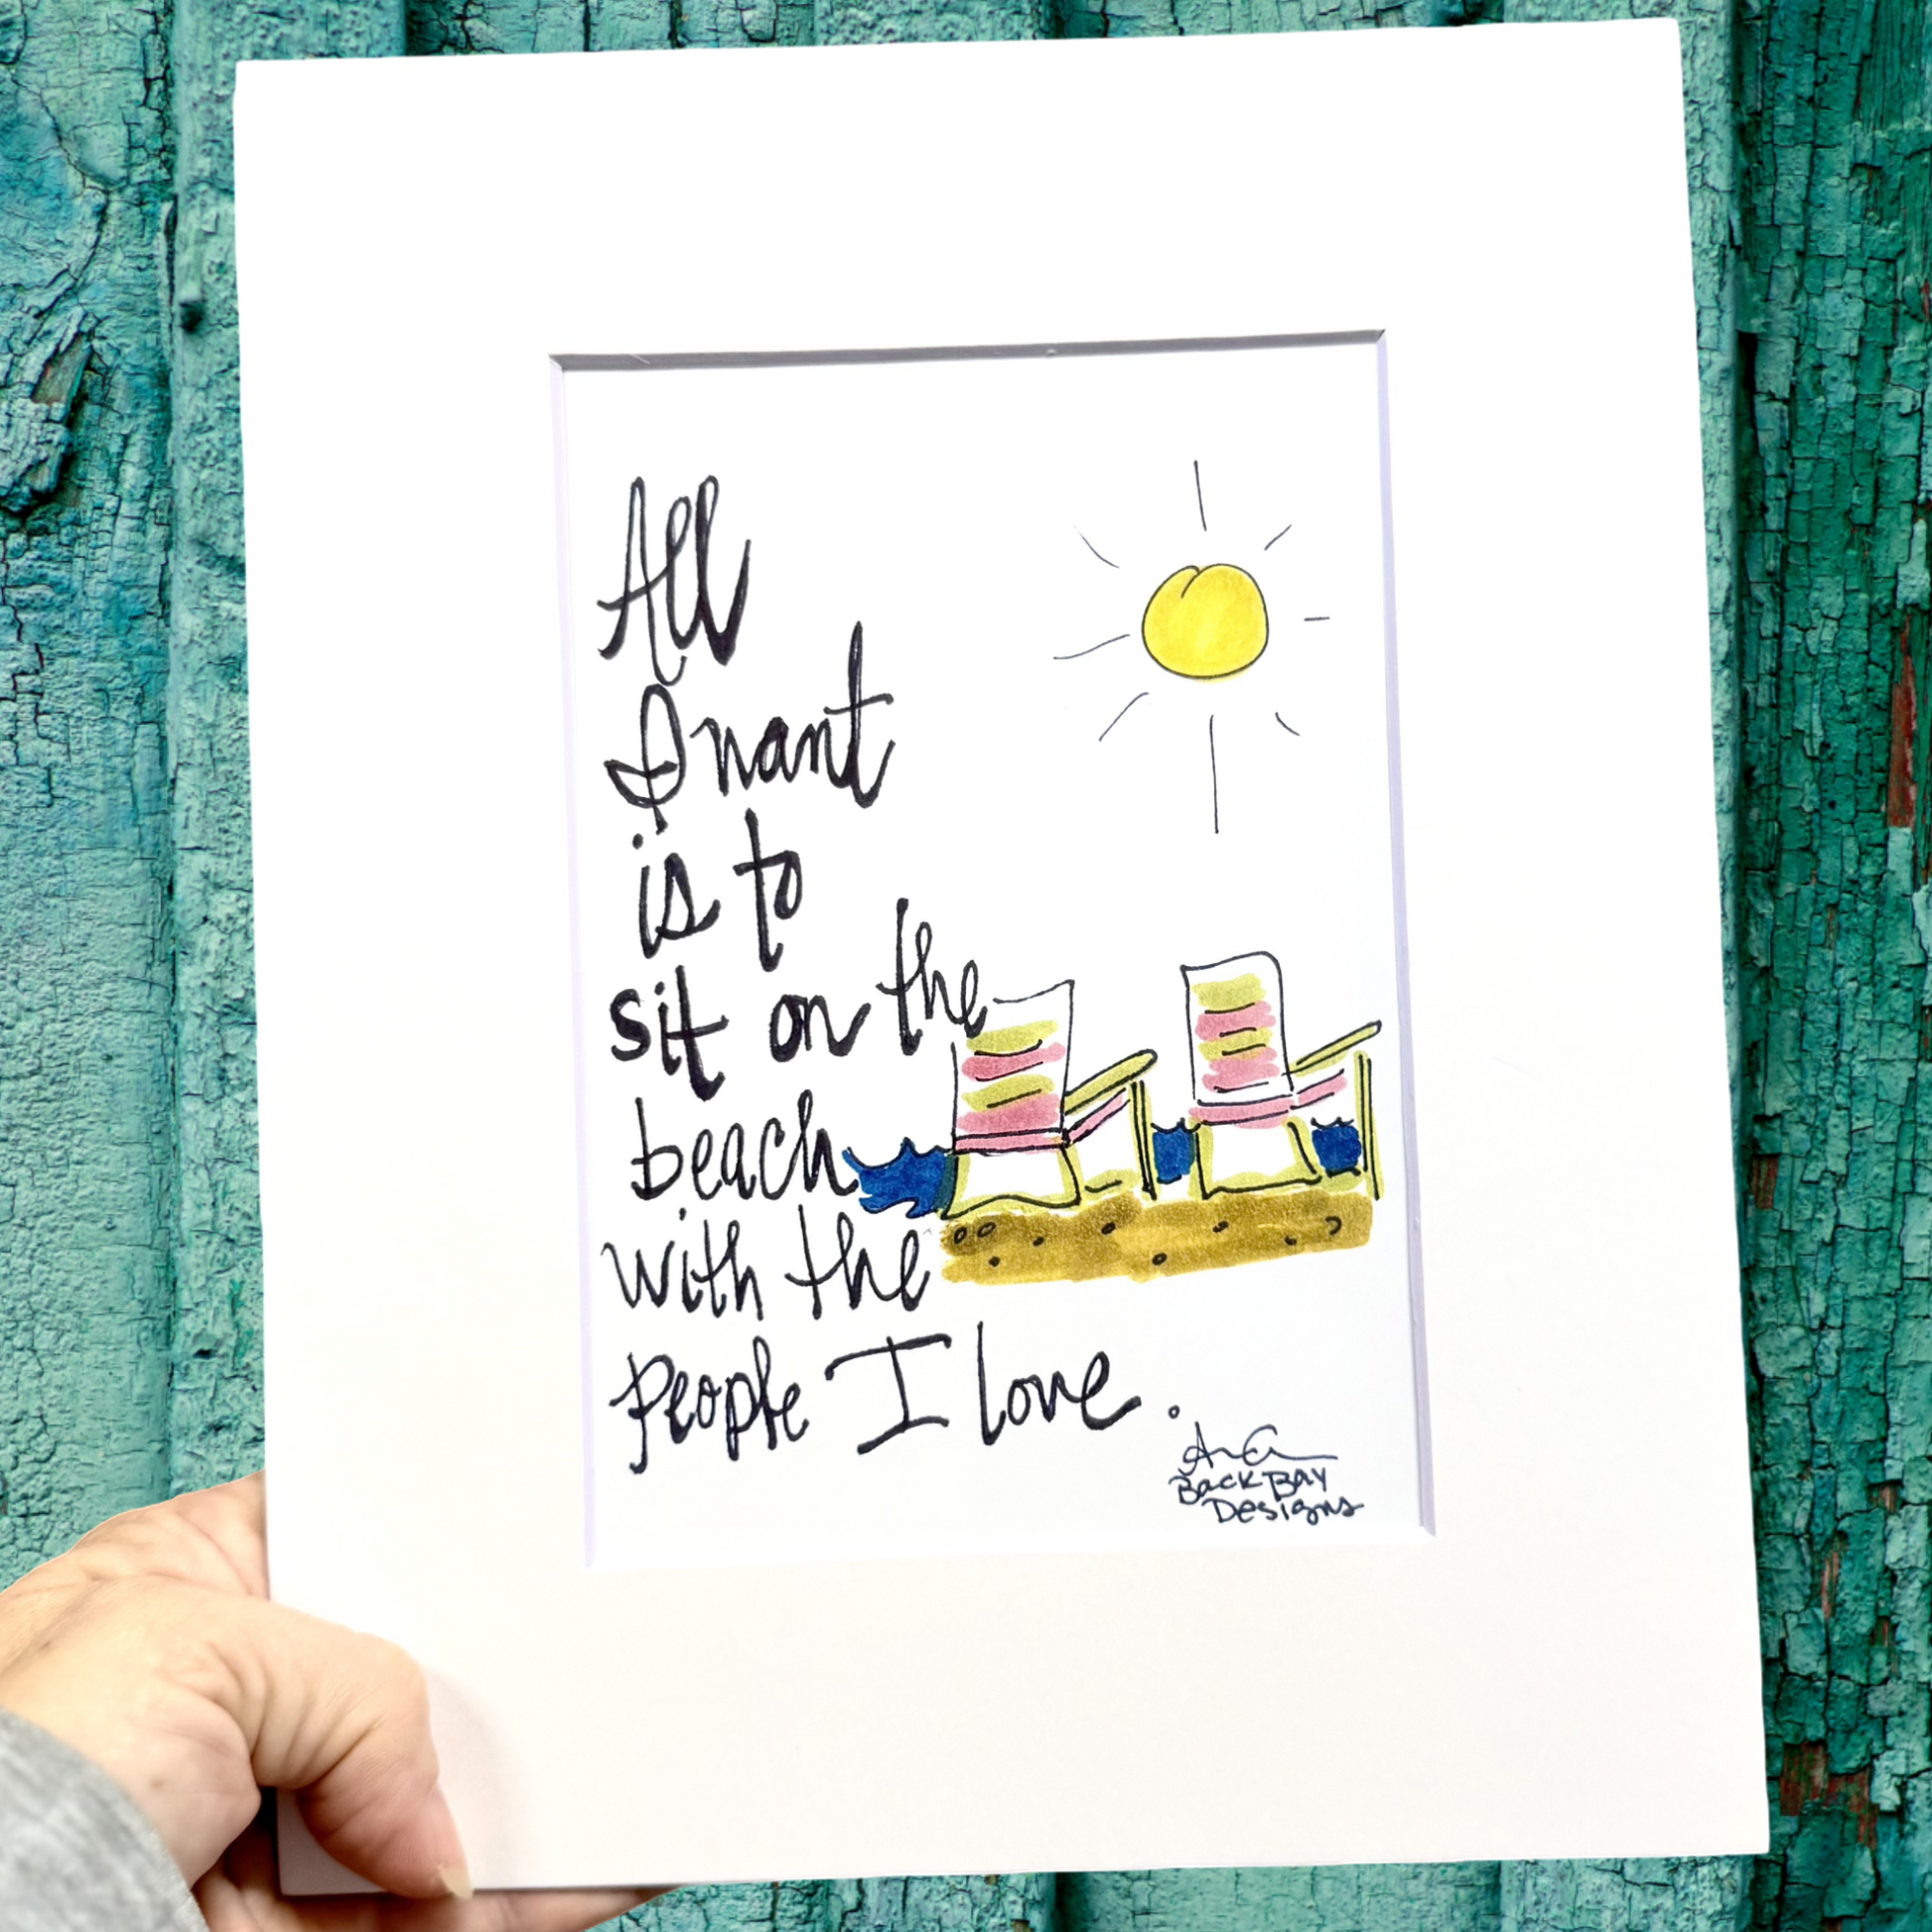 All
I want
is to
sit on the
beach
with the
people I love.
Back Bay
Designs